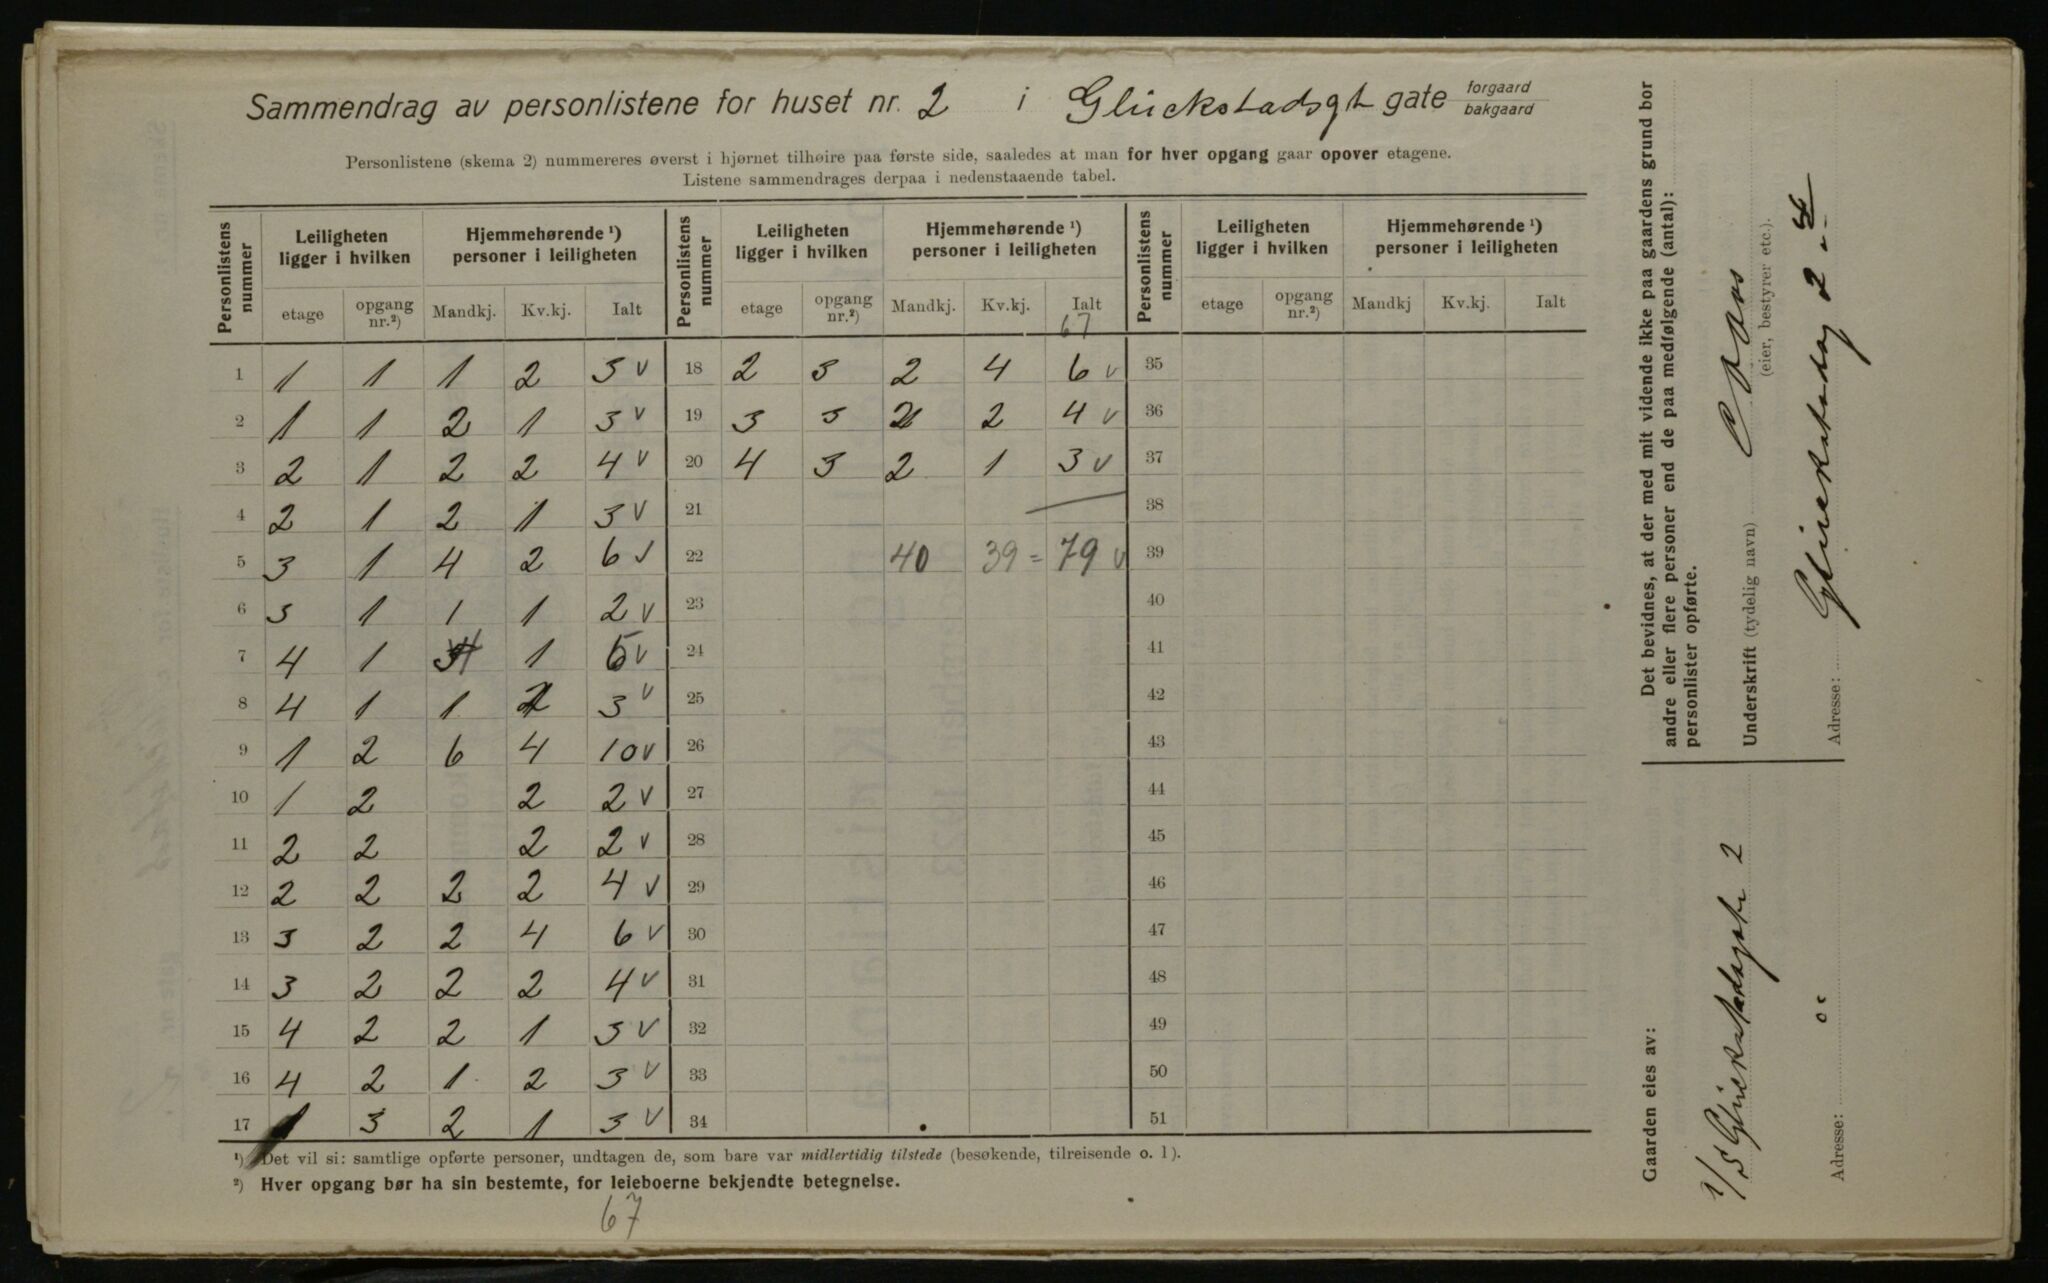 Sammendrag av personlistene for huset nr. 2 i Glückstadsgt gate forgaard bakgaard
Personlistene (skema 2) nummereres øverst i hjørnet tilhøire paa første side, saaledes at man for hver opgang gaar opover etagene.
Listene sammendrages derpaa i nedenstaaende tabel.
Personlistens nummer | Leiligheten ligger i hvilken | Hjemmehørende ¹) personer i leiligheten | Personlistens nummer | Leiligheten ligger i hvilken | Hjemmehørende ¹) personer i leiligheten | Personlistens nummer | Leiligheten ligger i hvilken | Hjemmehørende ¹) personer i leiligheten
etage | opgang nr.²) | Mandkj. | Kv.kj. | Ialt | etage | opgang nr.²) | Mandkj. | Kv.kj. | Ialt | etage | opgang nr.²) | Mandkj | Kv.kj. | Ialt
67
1 | 1 | 1 | 1 | 2 | 3 v | 18 | 2 | 3 | 2 | 4 | 6 v | 35
2 | 1 | 1 | 2 | 1 | 3 v | 19 | 3 | 3 | 2 | 2 | 4 v | 36
3 | 2 | 1 | 2 | 2 | 4 v | 20 | 4 | 3 | 2 | 1 | 3 v | 37
4 | 2 | 1 | 2 | 1 | 3 v | 21 | 38
5 | 3 | 1 | 4 | 2 | 6 v | 22 | 40 | 39 = 79 v | 39
6 | 3 | 1 | 1 | 1 | 2 v | 23 | 40
7 | 4 | 1 | 4 | 1 | 5 v | 24 | 41
8 | 4 | 1 | 1 | 2 | 3 v | 25 | 42
9 | 1 | 2 | 6 | 4 | 10 v | 26 | 43
10 | 1 | 2 | 2 | 2 v | 27 | 44
11 | 2 | 2 | 2 | 2 v | 28 | 45
12 | 2 | 2 | 2 | 2 | 4 v | 29 | 46
13 | 3 | 2 | 2 | 4 | 6 v | 30 | 47
14 | 3 | 2 | 2 | 2 | 4 v | 31 | 48
15 | 4 | 2 | 2 | 1 | 3 v | 32 | 49
16 | 4 | 2 | 1 | 2 | 3 v | 33 | 50
17 | 1 | 3 | 2 | 1 | 3 v | 34 | 51
¹) Det vil si: samtlige opførte personer, undtagen de, som bare var midlertidig tilstede (besøkende, tilreisende o. l).
²) Hver opgang bør ha sin bestemte, for leieboerne bekjendte betegnelse.
67
Det bevidnes, at der med mit vidende ikke paa gaardens grund bor
andre eller flere personer end de paa medfølgende (antal):
personlister opførte.
Underskrift (tydelig navn)
(eier, bestyrer etc.).
Adresse: Glückstadsg 2-4
Gaarden eies av:
Glückstadsgt 2
Adresse: